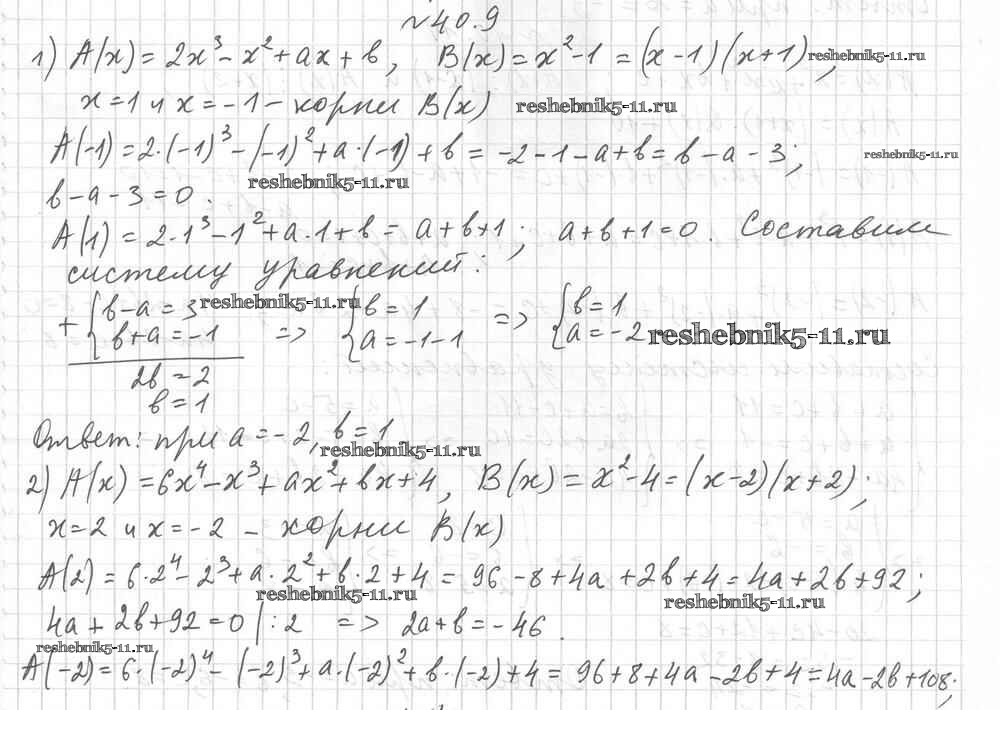 №40.9
1) A(x) = 2x³ - x² + ax + b, B(x) = x² - 1 = (x-1)(x+1), reshebnik5-11.ru
x = 1 и x = -1 - корни B(x) reshebnik5-11.ru
A(-1) = 2·(-1)³ - (-1)² + a·(-1) + b = -2 - 1 - a + b = b - a - 3; reshebnik5-11.ru
reshebnik5-11.ru
b - a - 3 = 0.
A(1) = 2·1³ - 1² + a·1 + b = a + b + 1; a + b + 1 = 0. Составим
систему уравнений:
+ { b - a = 3 reshebnik5-11.ru { b = 1 { b = 1
b + a = -1 => a = -1-1 => a = -2 reshebnik5-11.ru
2b = 2
b = 1
Ответ: при a = -2, b = 1
reshebnik5-11.ru
2) A(x) = 6x⁴ - x³ + ax² + bx + 4, B(x) = x² - 4 = (x-2)(x+2);
x = 2 и x = -2 - корни B(x)
A(2) = 6·2⁴ - 2³ + a·2² + b·2 + 4 = 96 - 8 + 4a + 2b + 4 = 4a + 2b + 92;
reshebnik5-11.ru reshebnik5-11.ru
4a + 2b + 92 = 0 | : 2 => 2a + b = -46.
reshebnik5-11.ru
A(-2) = 6·(-2)⁴ - (-2)³ + a·(-2)² + b·(-2) + 4 = 96 + 8 + 4a - 2b + 4 = 4a - 2b + 108;